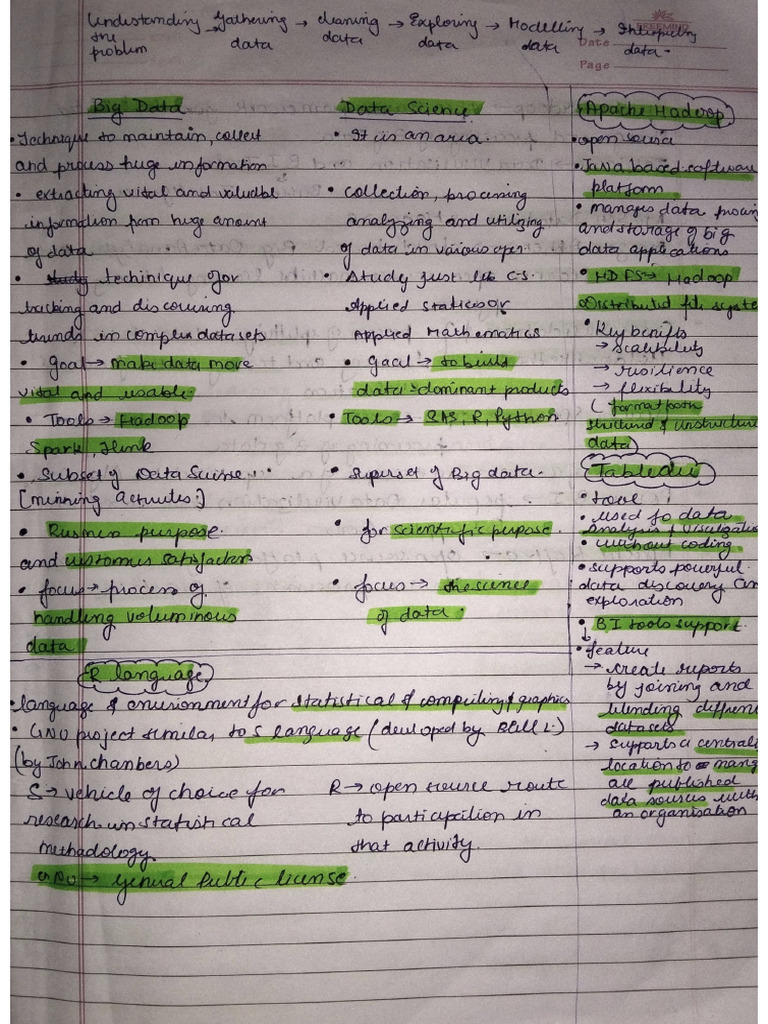 Understanding the problem → Gathering data → cleaning data → Exploring data → Modelling data → Interpreting data.
FREEMIND
Date
Page
Big Data
• Technique to maintain, collect
and process huge information
• extracting vital and valuable
information from huge amount
of data
• study techinique for
tracking and discovering
trends in complex datasets
• Goal → make data more
vital and usable.
• Tools → Hadoop
Spark, Flink
• Subset of Data Science.
[minning activites]
• Business purpose.
and customer satisfaction
• focus → process of
handling voluminous
data
Data Science
• It is an area.
• collection, processing
analyzing and utilizing
of data in various oper.
• Study just like C.S.
Applied statics or
Applied Mathematics
• Goal → to build
data-dominant products
• Tools → SAS, R, Python
• Superset of Big data.
• for scientific pupose
• focus → the science
of data.
Apache Hadoop
• open source
• Java based software
platform
• manages data
and storage of big
data applications
• HDFS → Hadoop
Distributed file
• Key benifits
→ scalability
→ resilience
→ flexibility
(
structured & unstructured
data)
Tableau
• tool
• used fo data
Analysis &
• without coding
• supports powerful
data discovery
exploration
• BI tools support.
• feature
→ create reports
by joining and
blending
datasets
→ supports a
location to
all published
data sources with
an organisation
R language
• language & envionment for statistical & compiling & graphics
• GNU project similar to S language (developed by Bell L.)
(by John chambers)
S → vehicle of choice for
research in statistical
methadology
R → open source route
to participation in
that activity.
→ General Public license.